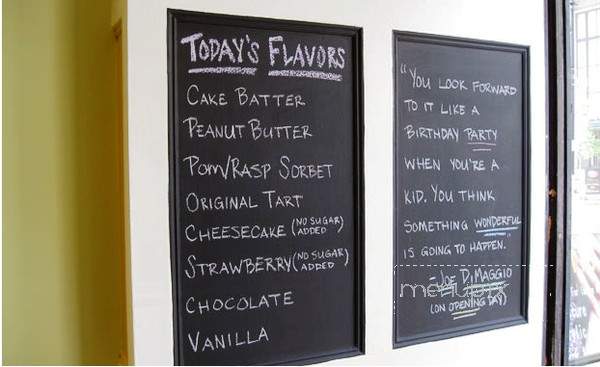 TODAY'S FLAVORS
CAKE BATTER
PEANUT BUTTER
POM/RASP SORBET
ORIGINAL TART
CHEESECAKE (NO SUGAR ADDED)
STRAWBERRY (NO SUGAR ADDED)
CHOCOLATE
VANILLA
"YOU LOOK FORWARD
TO IT LIKE A
BIRTHDAY PARTY
WHEN YOU'RE A
KID. YOU THINK
SOMETHING WONDERFUL
IS GOING TO HAPPEN.
-JOE DIMAGGIO
menupix
(ON OPENING DAY)